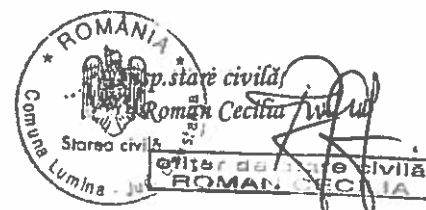 ROMÂNIA
Comuna Lumina - jud. Constanța
Starea civilă
Insp.stare civilă,
Roman Cecilia
ofițer de stare civilă
ROMAN CECILIA